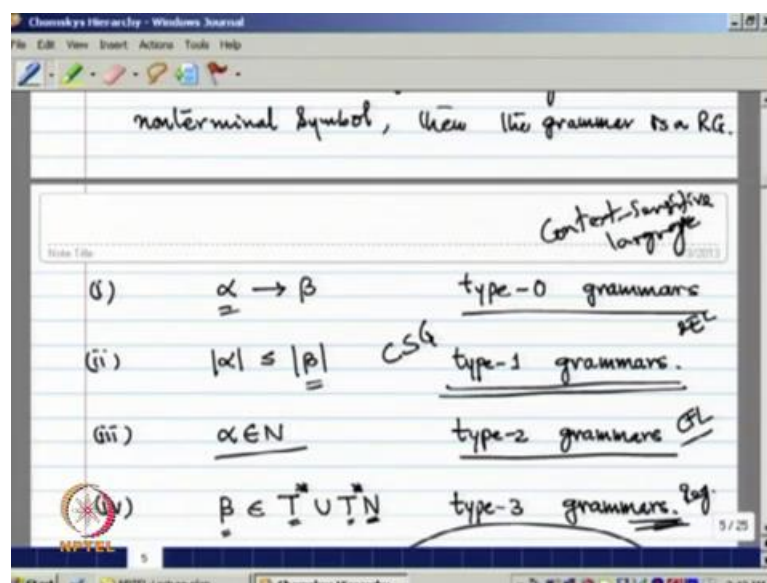 Chomskys Hierarchy - Windows Journal
File Edit View Insert Actions Tools Help
nonterminal symbol, then the grammer is a RG.
Context-Sensitive
language
Note Title
/3/2013
(i) α → β type-0 grammars
(ii) |α| ≤ |β| CSG type-1 grammars. REC
(iii) α ∈ N type-2 grammars CFL
(iv) β ∈ T* ∪ T*N type-3 grammars. Reg.
5 / 25
NPTEL
5